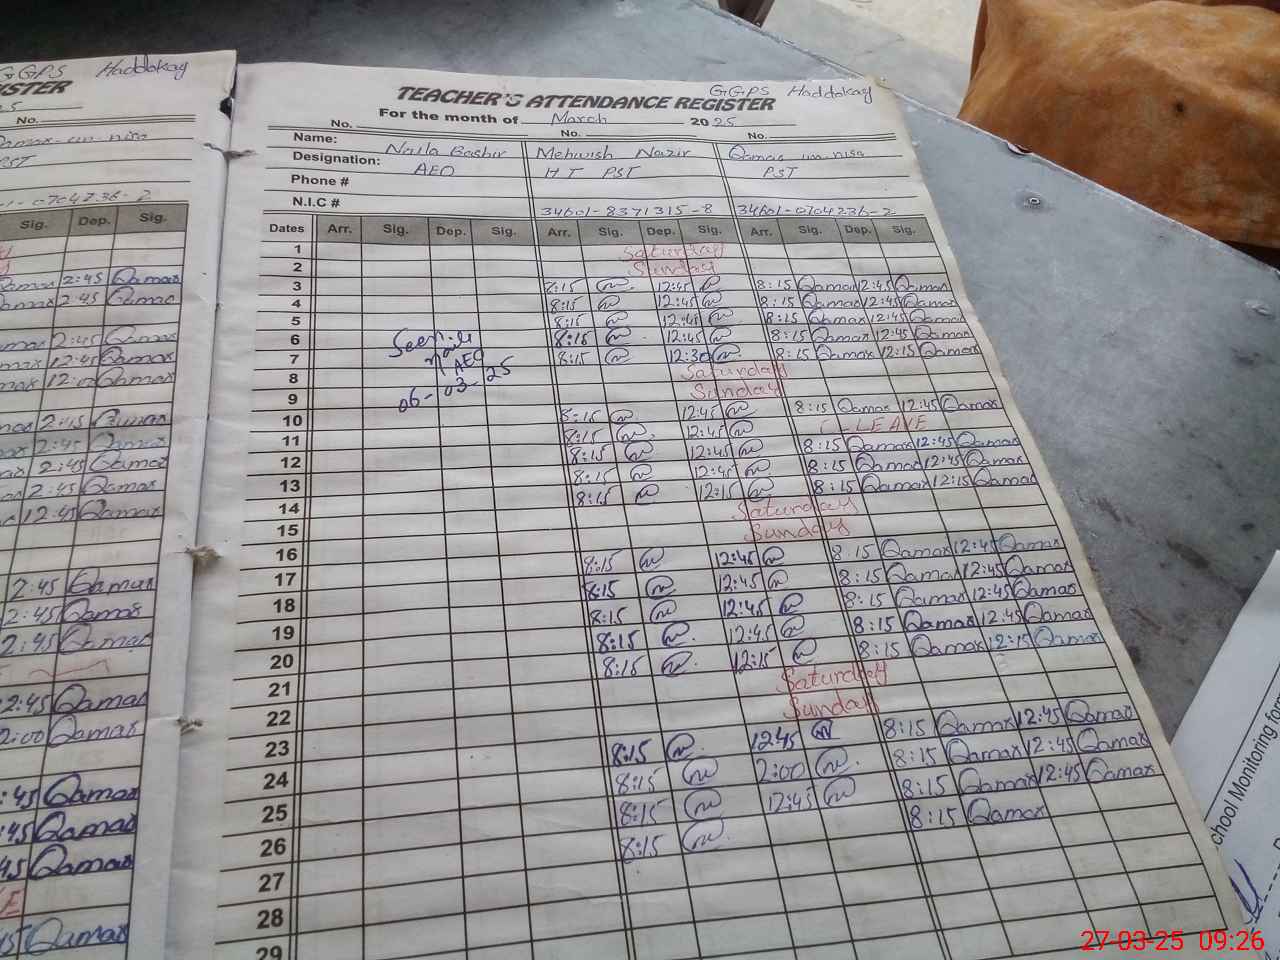 GGPS Haddokay
ISTER
No.
Sig. Dep. Sig.
2:45 Qamar
2:45 Qamar
2:45 Qamar
12:45 Qamar
12:00 Qamar
2:45 Qamar
2:45 Qamar
2:45 Qamar
2:45 Qamar
12:45 Qamar
2:45 Qamar
2:45 Qamar
2:45 Qamar
2:45 Qamar
2:00 Qamar
:45 Qamar
:45 Qamar
45 Qamar
Qamar
GGPS Haddokay
TEACHER'S ATTENDANCE REGISTER
For the month of March 2025
No. No. No.
Name: Naila Bashir Mehwish Nazir Qamar un nisa
Designation: AEO HT PST PST
Phone #
N.I.C # 34601-8371315-8 34601-0704236-2
Dates Arr. Sig. Dep. Sig. Arr. Sig. Dep. Sig. Arr. Sig. Dep. Sig.
1 Saturday
2 Sunday
3 8:15 12:45 8:15 Qamar 12:45 Qamar
4 8:15 12:45 8:15 Qamar 12:45 Qamar
5 8:15 12:45 8:15 Qamar 12:45 Qamar
6 8:15 12:45 8:15 Qamar 12:45 Qamar
7 8:15 12:30 8:15 Qamar 12:15 Qamar
Seen
AEO
06-03-25
8 Saturday
9 Sunday
10 8:15 12:45 8:15 Qamar 12:45 Qamar
11 8:15 12:45 C-LEAVE
12 8:15 12:45 8:15 Qamar 12:45 Qamar
13 8:15 12:45 8:15 Qamar 12:45 Qamar
14 8:15 12:15 8:15 Qamar 12:15 Qamar
15 Saturday
16 Sunday
17 8:15 12:45 8:15 Qamar 12:45 Qamar
18 8:15 12:45 8:15 Qamar 12:45 Qamar
19 8:15 12:45 8:15 Qamar 12:45 Qamar
20 8:15 12:45 8:15 Qamar 12:45 Qamar
21 8:15 12:15 8:15 Qamar 12:15 Qamar
22 Saturday
23 Sunday
24 8:15 12:45 8:15 Qamar 12:45 Qamar
25 8:15 2:00 8:15 Qamar 12:45 Qamar
26 8:15 12:45 8:15 Qamar 12:45 Qamar
27 8:15 8:15 Qamar
28
29
chool Monitoring for
27-03-25 09:26